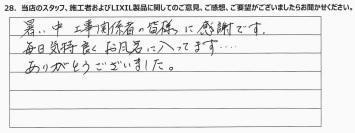 28. 当店のスタッフ、施工者およびLIXIL製品に関してのご意見、ご感想、ご要望がございましたらお聞かせください。
暑い中工事関係者の皆様に感謝です。
毎日気持良くお風呂に入ってます‥‥
ありがとうございました。